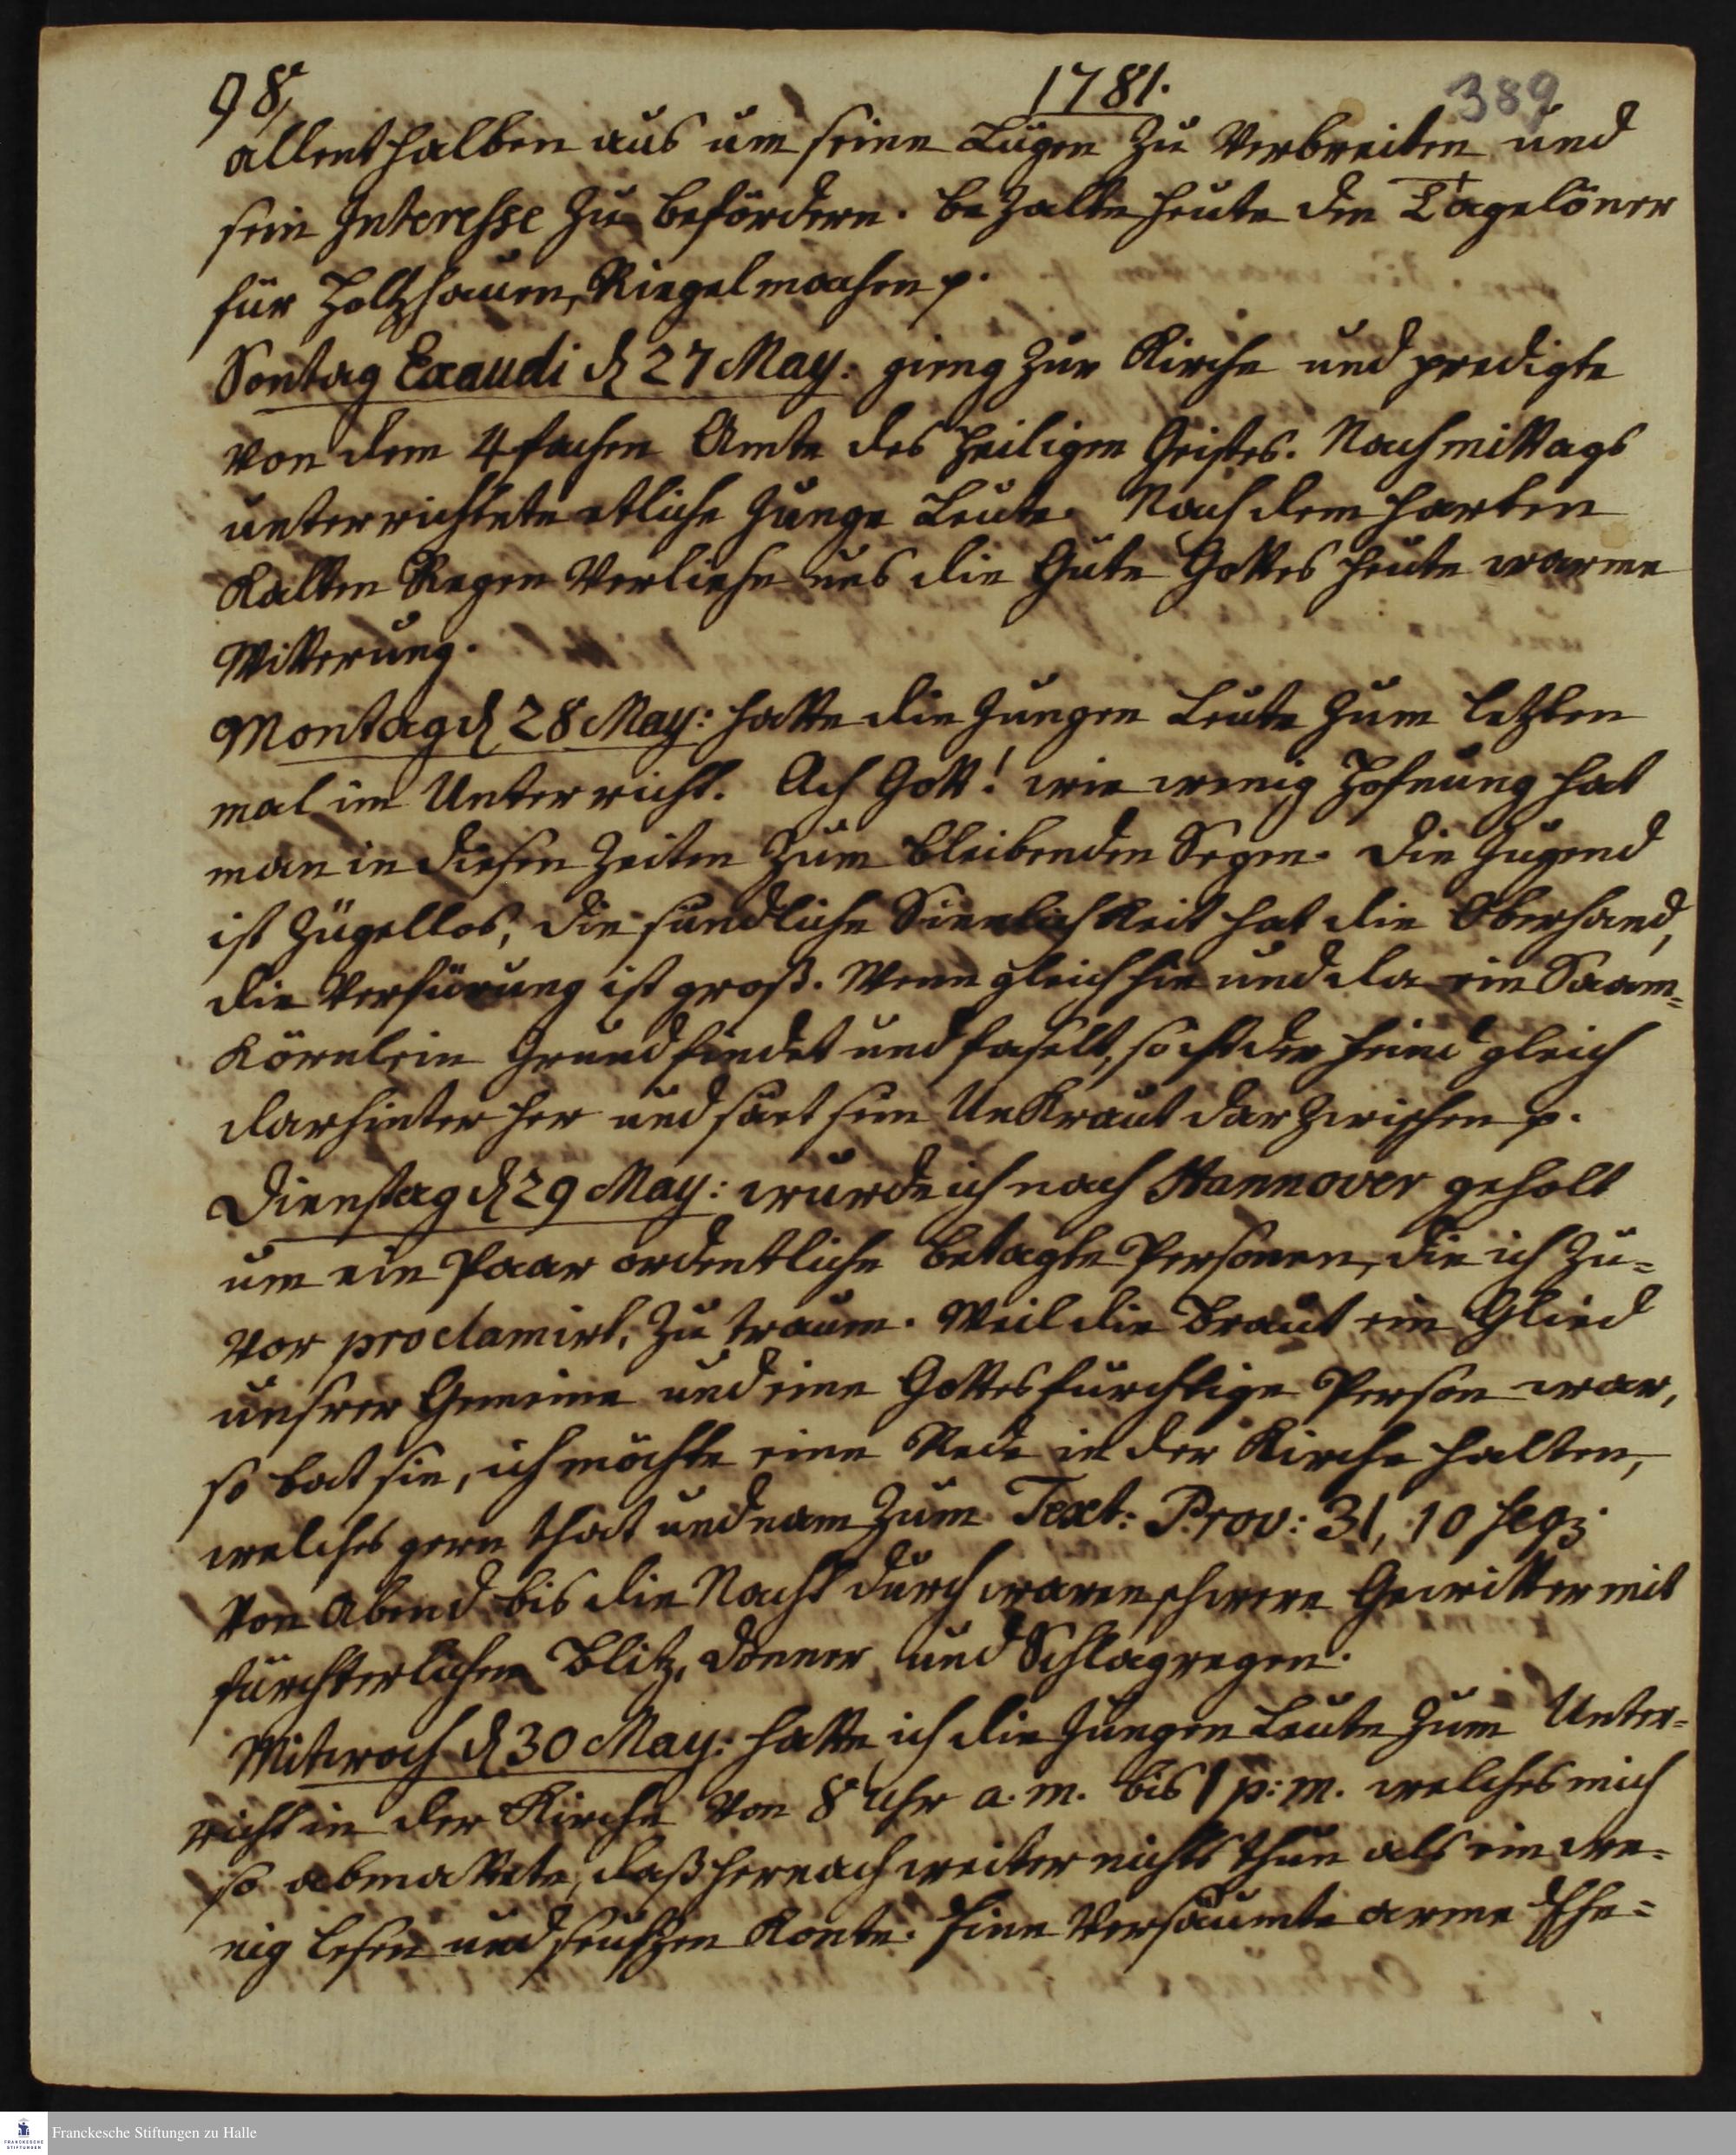 98,
1781.
389
allenthalben aus um seine Lügen zu verbreiten und
sein Interesse zu befördern. bezalte heute den Tagelöner
für Holtzhauen, Riegelmachen p.
Sontag Exaudi d 27 May: gieng zur Kirche und predigte
von dem 4fachen Amte des Heiligen Geistes. Nachmittags
unterrichtete etliche junge Leute. Nach dem harten
Kalten Regen verliehe uns die Güte Gottes heute warme
Witterung.
Montag d 28 May: hatte die jungen Leute zum letzten
mal im Unterricht. Ach Gott! wie wenig Hofnung hat
man in diesen Zeiten zum bleibenden Segen. die Jugend
ist Zügellos, die sündliche Sinnlichkeit hat die Oberhand,
die Verfürung ist groß. Wenn gleich hie und da ein Saam-
Körnlein Grund findet und faselt, so ist der Feind gleich
darhinter her und säet sein UnKraut darzwischen p.
Dienstag d 29 May: wurde ich nach Hannover geholt
um ein Paar ordentliche betagte Personen, die ich zu-
vor proclamirt, zu trauen. Weil die Braut ein Glied
unsrer Gemeine und eine Gottesfürchtige Person war,
so bat sie, ich möchte eine Rede in der Kirche halten,
welches gern that und nam zum Text: Prov: 31, 10 seqq.
Von Abend bis die Nacht durch waren schwere Gewitter mit
fürchterlichen Blitz, Donner und Schlagregen.
Mitwoch d 30 May: hatte ich die jungen Leute zum Unter-
richt in der Kirche von 8 Uhr a. m. bis 1 p: m. welches mich
so abmattete, daß hernach weiter nichts thun als ein we-
nig lesen und seufzen konte. Eine versäumte arme Ehe-
Franckesche Stiftungen zu Halle